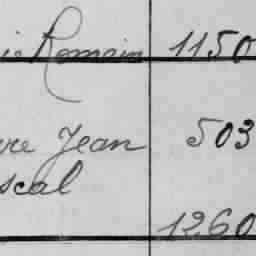 ie Romain 1150
re Jean 503
scal
1260